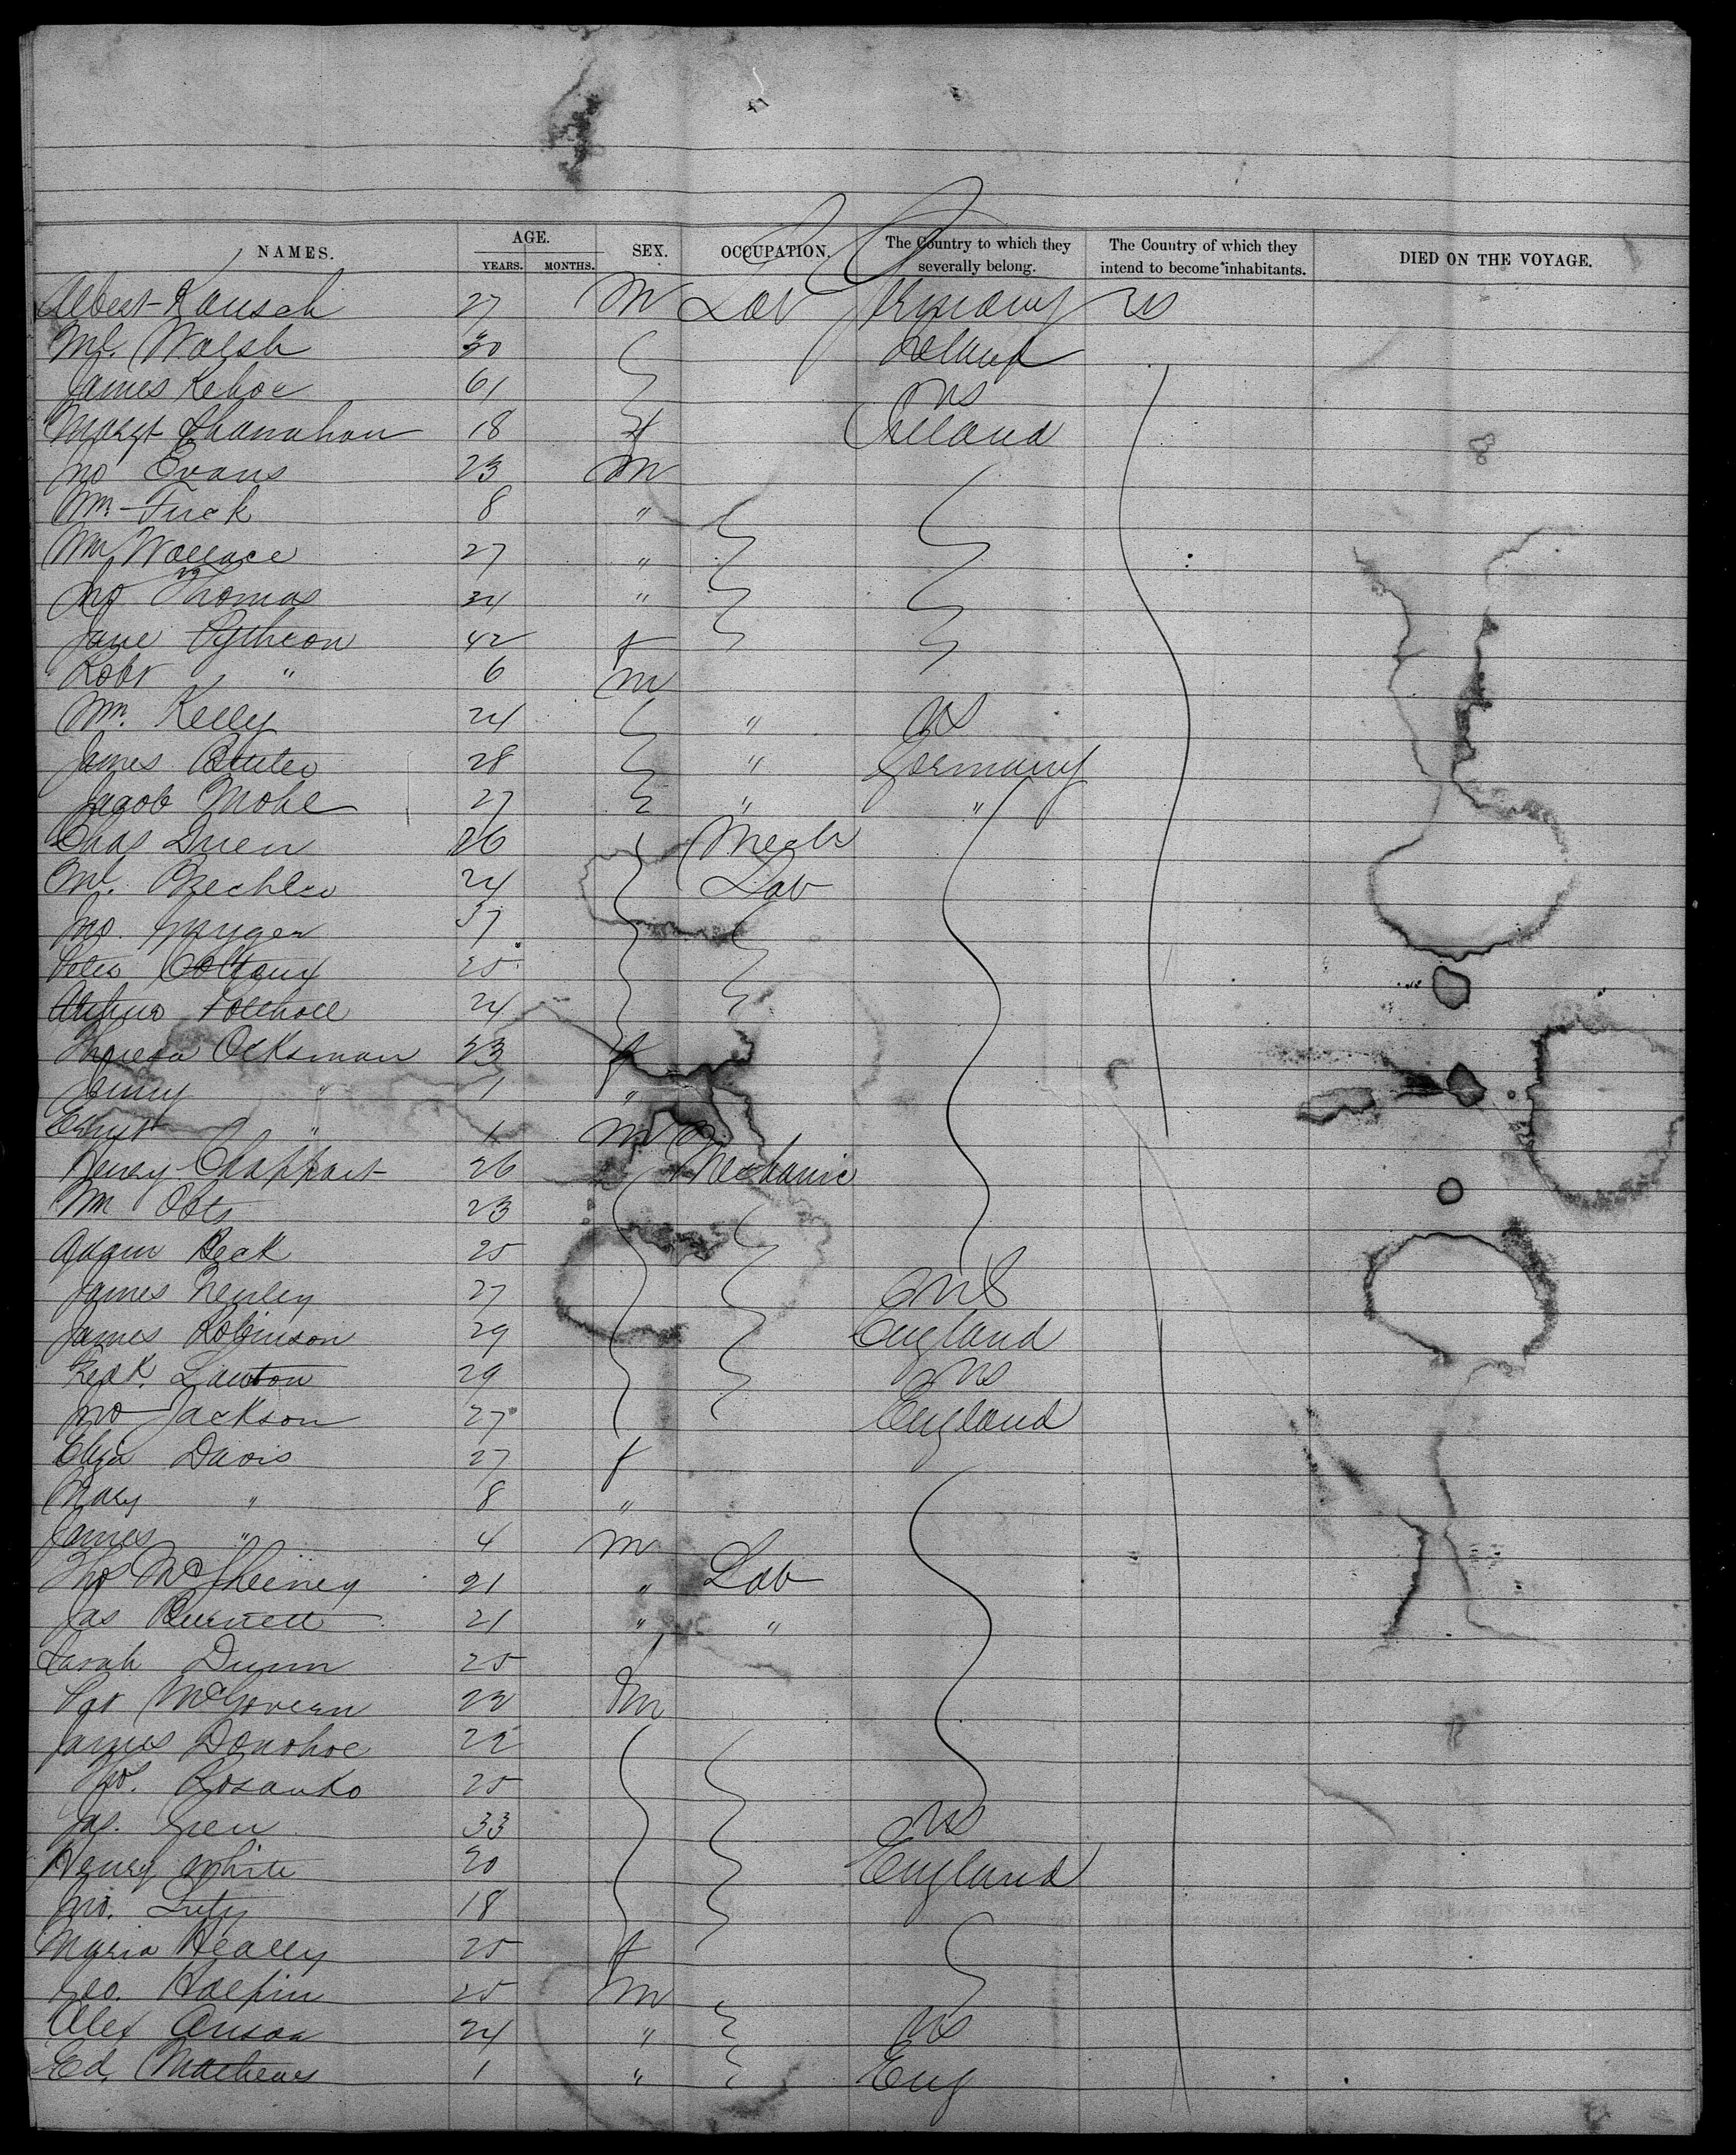 NAMES. AGE. YEARS. MONTHS. SEX. OCCUPATION. The Country to which they severally belong. The Country of which they intend to become inhabitants. DIED ON THE VOYAGE.
Albert Kausch 27 M Lab Germany US
Ml. Walsh 30 Ireland
James Kehoe 61 US
Margt Shanahan 18 f Ireland
Jno Evans 23 M
Wm Tuck 8 "
Wm Wallace 27 "
Jno Thomas 34 "
Jane 42 f
Robt " 6 m
Wm. Kelly 24 " US
James 28 " Germany
Jacob Mohl 27 " "
Chas Duen 26 Mech
Ml. Bechler 24 Lab
Jno. 37
Peter 25
Arthur 24
Theresa Ocksman 23 f
Jenny " 1 "
Ernst " 1 M
Henry Chappart 26 Mechanic
Wm Obts 23
Adam Beck 25
James Henley 27 US
James Robinson 29 England
Fredk. Lawton 29 US
Jno Jackson 27 England
Eliza Davis 27 f
Mary " 8 "
James " 4 m
Thos McSheeney 21 " Lab
Jas Burnett 21 " "
Sarah Dunn 25 f
Pat McGovern 22 m
James Donohoe 22
Thos. Rosanko 25
Jas. Gren 33 US
Henry White 20 England
Jno. Luty 18
Maria Healey 25 f
Geo. Halpin 25 M
Alex Anson 24 " US
Ed. Mathews 1 " Eng